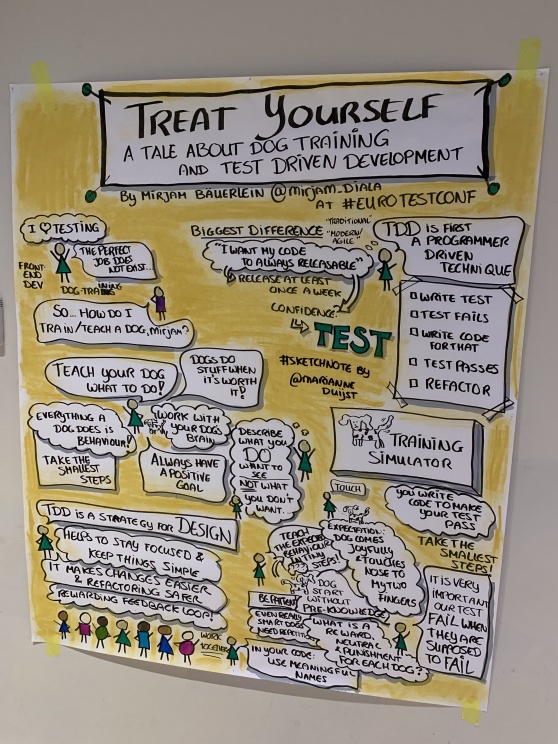 TREAT YOURSELF
A TALE ABOUT DOG TRAINING
AND TEST DRIVEN DEVELOPMENT
By MIRJAM BÄUERLEIN @mirjam_DIALA
AT #EUROTESTCONF
I ♡ TESTING
FRONT
END
DEV
THE PERFECT
JOB DOES
NOT EXIST...
DOG TRAINING
SO... HOW DO I
TRAIN/TEACH A DOG, MIRJAM?
TEACH YOUR DOG
WHAT TO DO!
DOGS DO
STUFF WHEN
IT'S WORTH
IT!
EVERYTHING A
DOG DOES IS
BEHAVIOUR!
WORK WITH
YOUR DOGS
BRAIN
TAKE THE
SMALLEST
STEPS
ALWAYS HAVE
A POSITIVE
GOAL
DESCRIBE
WHAT YOU
DO
WANT TO
SEE
NOT WHAT
YOU DON'T
WANT...
BIGGEST DIFFERENCE
"TRADITIONAL"
"MODERN/
AGILE"
"I WANT MY CODE
TO ALWAYS RELEASABLE"
RELEASE AT LEAST
ONCE A WEEK
CONFIDENCE:
TEST
#SKETCHNOTE BY
@MARIANNE
DUIJST
TDD IS FIRST
A PROGRAMMER
DRIVEN
TECHNIQUE
WRITE TEST
TEST FAILS
WRITE CODE
FOR THAT
TEST PASSES
REFACTOR
TRAINING
SIMULATOR
TOUCH
YOU WRITE
CODE TO MAKE
YOUR TEST
PASS
TAKE THE
SMALLEST
STEPS!
EXPECTATION:
DOG COMES
JOYFULLY
& TOUCHES
NOSE TO
MY TWO
FINGERS
TEACH
THE EXPECTED
BEHAVIOUR
IN TINY
STEPS!
DOG
START
WITHOUT
PRE-KNOWLEDGE
BE PATIENT
EVEN REALLY
SMART DOGS
NEED REPETITION
WHAT IS A
REWARD,
NEUTRAL
& PUNISHMENT
FOR EACH DOG?
IT IS VERY
IMPORTANT
OUR TEST
FAIL WHEN
THEY ARE
SUPPOSED
TO FAIL
TDD IS A STRATEGY FOR DESIGN
HELPS TO STAY FOCUSED &
KEEP THINGS SIMPLE
IT MAKES CHANGES EASIER
& REFACTORING SAFER
REWARDING FEEDBACK LOOP!
WORK
TOGETHER
IN YOUR CODE:
USE MEANINGFUL
NAMES